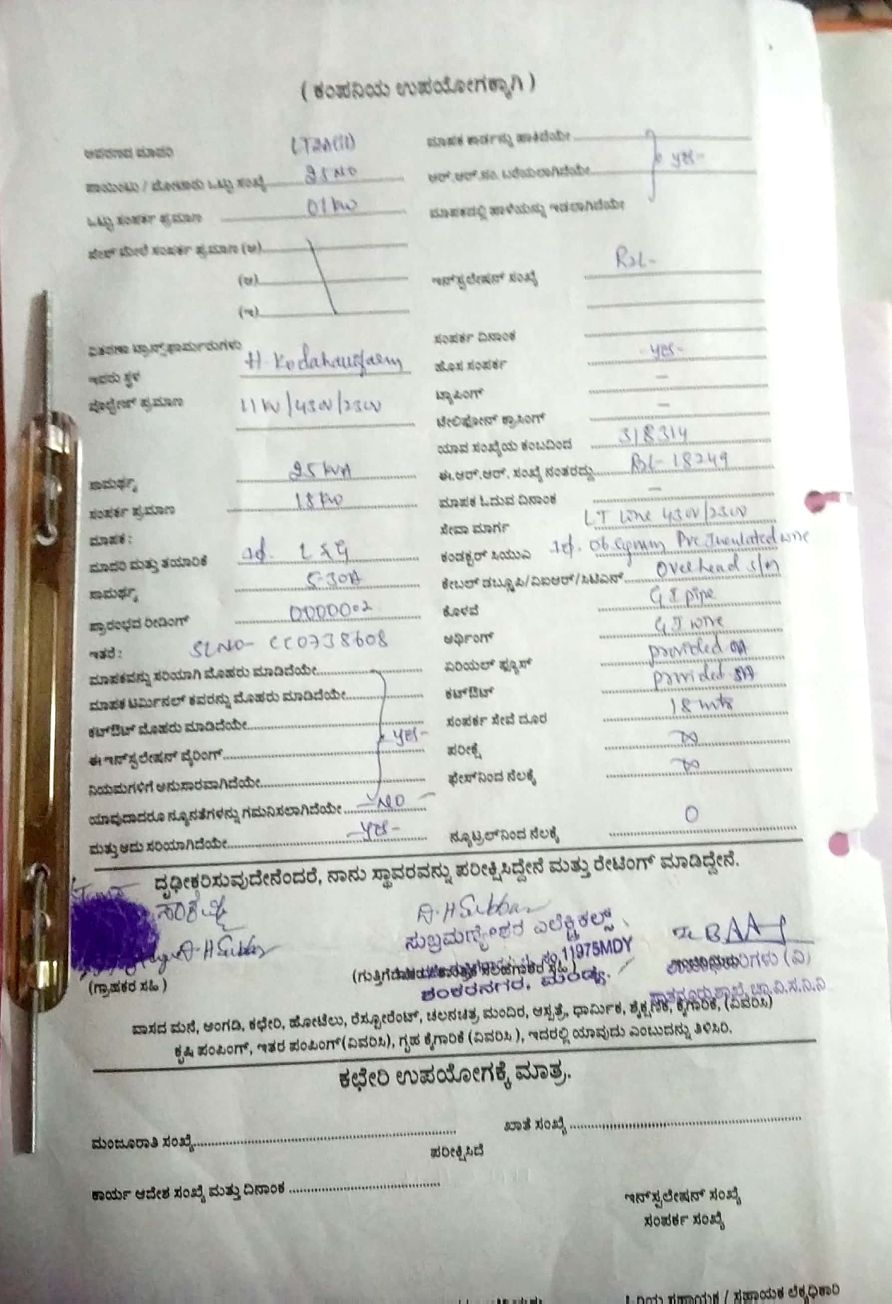 ( ಕಂಪನಿಯ ಉಪಯೋಗಕ್ಕಾಗಿ )
ಮಾದರಿ LT2A(ii)
ಒಟ್ಟು ಸಂಖ್ಯೆ 25 NO
ಒಟ್ಟು ಸಂಪರ್ಕ ಪ್ರಮಾಣ 01 kw
ಸಂಪರ್ಕ ಪ್ರಮಾಣ (ಅ)
(ಆ)
(ಇ)
ವಿತರಣಾ ಟ್ರಾನ್ಸ್‌ಫಾರ್ಮರುಗಳು
ಇರುವ ಸ್ಥಳ
ವೋಲ್ಟೇಜ್ ಪ್ರಮಾಣ 11 kv/430v/230v
ಸಾಮರ್ಥ್ಯ 25 kVA
ಸಂಪರ್ಕ ಪ್ರಮಾಣ 18 kw
ಮಾಪಕ :
ಮಾದರಿ ಮತ್ತು ತಯಾರಿಕೆ L & G
ಸಾಮರ್ಥ್ಯ 5-30A
ಪ್ರಾರಂಭದ ರೀಡಿಂಗ್ 0000002
ಇತರೆ : SLNO- CC0738608
ಮಾಪಕವನ್ನು ಸರಿಯಾಗಿ ಮೊಹರು ಮಾಡಿದೆಯೇ
ಮಾಪಕ ಟರ್ಮಿನಲ್ ಕವರನ್ನು ಮೊಹರು ಮಾಡಿದೆಯೇ
ಕಟ್‌ಔಟ್ ಮೊಹರು ಮಾಡಿದೆಯೇ
ಈ ಇನ್‌ಸ್ಟಲೇಷನ್ ವೈರಿಂಗ್ yes-
ನಿಯಮಗಳಿಗೆ ಅನುಸಾರವಾಗಿದೆಯೇ
ಯಾವುದಾದರೂ ನ್ಯೂನತೆಗಳನ್ನು ಗಮನಿಸಲಾಗಿದೆಯೇ -NO-
ಮತ್ತು ಅದು ಸರಿಯಾಗಿದೆಯೇ -yes-
ಮಾಪಕ ಕಾರ್ಡನ್ನು ಹಾಕಿದೆಯೇ
ಆರ್.ಆರ್.ಸಂ. ಬರೆಯಲಾಗಿದೆಯೇ yes-
ಇಡಲಾಗಿದೆಯೇ
ಇನ್‌ಸ್ಟಲೇಷನ್ ಸಂಖ್ಯೆ
ಸಂಪರ್ಕ ದಿನಾಂಕ
ಹೊಸ ಸಂಪರ್ಕ -yes-
ಟ್ಯಾಪಿಂಗ್ -
ಟೆಲಿಫೋನ್ ಕ್ರಾಸಿಂಗ್ -
ಯಾವ ಸಂಖ್ಯೆಯ ಕಂಬದಿಂದ 3/8314
ಈ.ಆರ್.ಆರ್. ಸಂಖ್ಯೆ ನಂತರದ್ದು BL-18249
ಮಾಪಕ ಓದುವ ದಿನಾಂಕ -
ಸೇವಾ ಮಾರ್ಗ LT Line 430v/230v
ಕಂಡಕ್ಟರ್ ಸಿಯುಎ 06 sqmm Pre Insulated wire
ಕೇಬಲ್ ಡಬ್ಲ್ಯೂಪಿ/ವಿಐಆರ್/ಸಿಟಿಎಸ್ Overhead s/m
ಕೊಳವೆ G I pipe
ಅರ್ಥಿಂಗ್ G I wire
ಏರಿಯಲ್ ಫ್ಯೂಸ್ provided
ಕಟ್‌ಔಟ್ provided
ಸಂಪರ್ಕ ಸೇವೆ ದೂರ 18 mts
ಪರೀಕ್ಷೆ ∞
ಫೇಸ್‌ನಿಂದ ನೆಲಕ್ಕೆ ∞
ನ್ಯೂಟ್ರಲ್‌ನಿಂದ ನೆಲಕ್ಕೆ 0
ದೃಢೀಕರಿಸುವುದೇನೆಂದರೆ, ನಾನು ಸ್ಥಾವರವನ್ನು ಪರೀಕ್ಷಿಸಿದ್ದೇನೆ ಮತ್ತು ರೇಟಿಂಗ್ ಮಾಡಿದ್ದೇನೆ.
ಸುಬ್ರಮಣ್ಯೇಶ್ವರ ಎಲೆಕ್ಟ್ರಿಕಲ್ಸ್
11975MDY
ಶಂಕರನಗರ, ಮಂಡ್ಯ.
(ಗ್ರಾಹಕರ ಸಹಿ )
ವಾಸದ ಮನೆ, ಅಂಗಡಿ, ಕಛೇರಿ, ಹೋಟೆಲು, ರೆಸ್ಟೋರೆಂಟ್, ಚಲನಚಿತ್ರ ಮಂದಿರ, ಆಸ್ಪತ್ರೆ, ಧಾರ್ಮಿಕ, ಶೈಕ್ಷಣಿಕ, ಕೈಗಾರಿಕೆ, (ವಿವರಿಸಿ)
ಕೃಷಿ ಪಂಪಿಂಗ್, ಇತರ ಪಂಪಿಂಗ್(ವಿವರಿಸಿ), ಗೃಹ ಕೈಗಾರಿಕೆ (ವಿವರಿಸಿ ), ಇದರಲ್ಲಿ ಯಾವುದು ಎಂಬುದನ್ನು ತಿಳಿಸಿರಿ.
ಕಛೇರಿ ಉಪಯೋಗಕ್ಕೆ ಮಾತ್ರ.
ಮಂಜೂರಾತಿ ಸಂಖ್ಯೆ
ಖಾತೆ ಸಂಖ್ಯೆ
ಪರೀಕ್ಷಿಸಿದೆ
ಕಾರ್ಯ ಆದೇಶ ಸಂಖ್ಯೆ ಮತ್ತು ದಿನಾಂಕ
ಇನ್‌ಸ್ಟಲೇಷನ್ ಸಂಖ್ಯೆ
ಸಂಪರ್ಕ ಸಂಖ್ಯೆ
ಹಿರಿಯ ಸಹಾಯಕ / ಸಹಾಯಕ ಲೆಕ್ಕಾಧಿಕಾರಿ